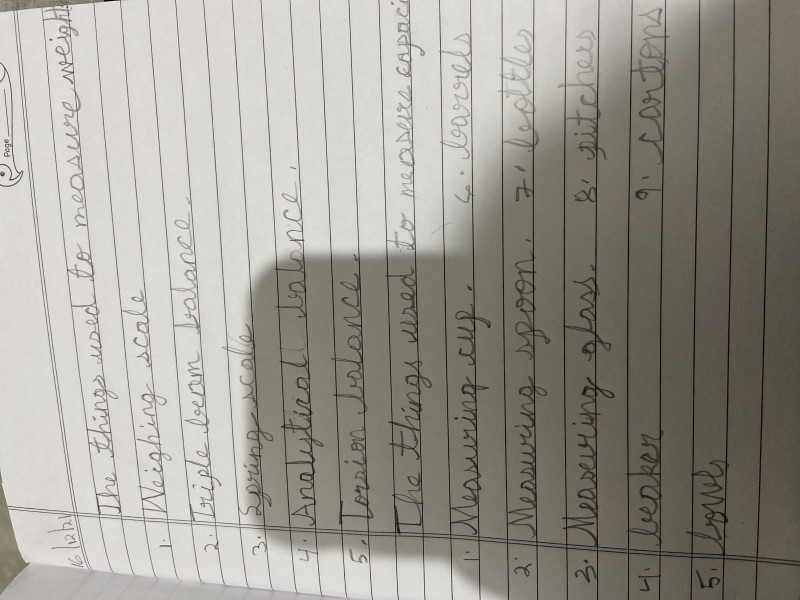 Page
16/12/21
The things used to measure weight
1. Weighing scale
2. Triple beam balance.
3. Spring scale
4. Analytical balance.
5. Torsion balance.
The things used to measure capaci
1. Measuring cup. 6. barrels
2. Measuring spoon. 7. bottles
3. Measuring glass. 8. pitchers
4. beaker 9. cartons
5. bowls